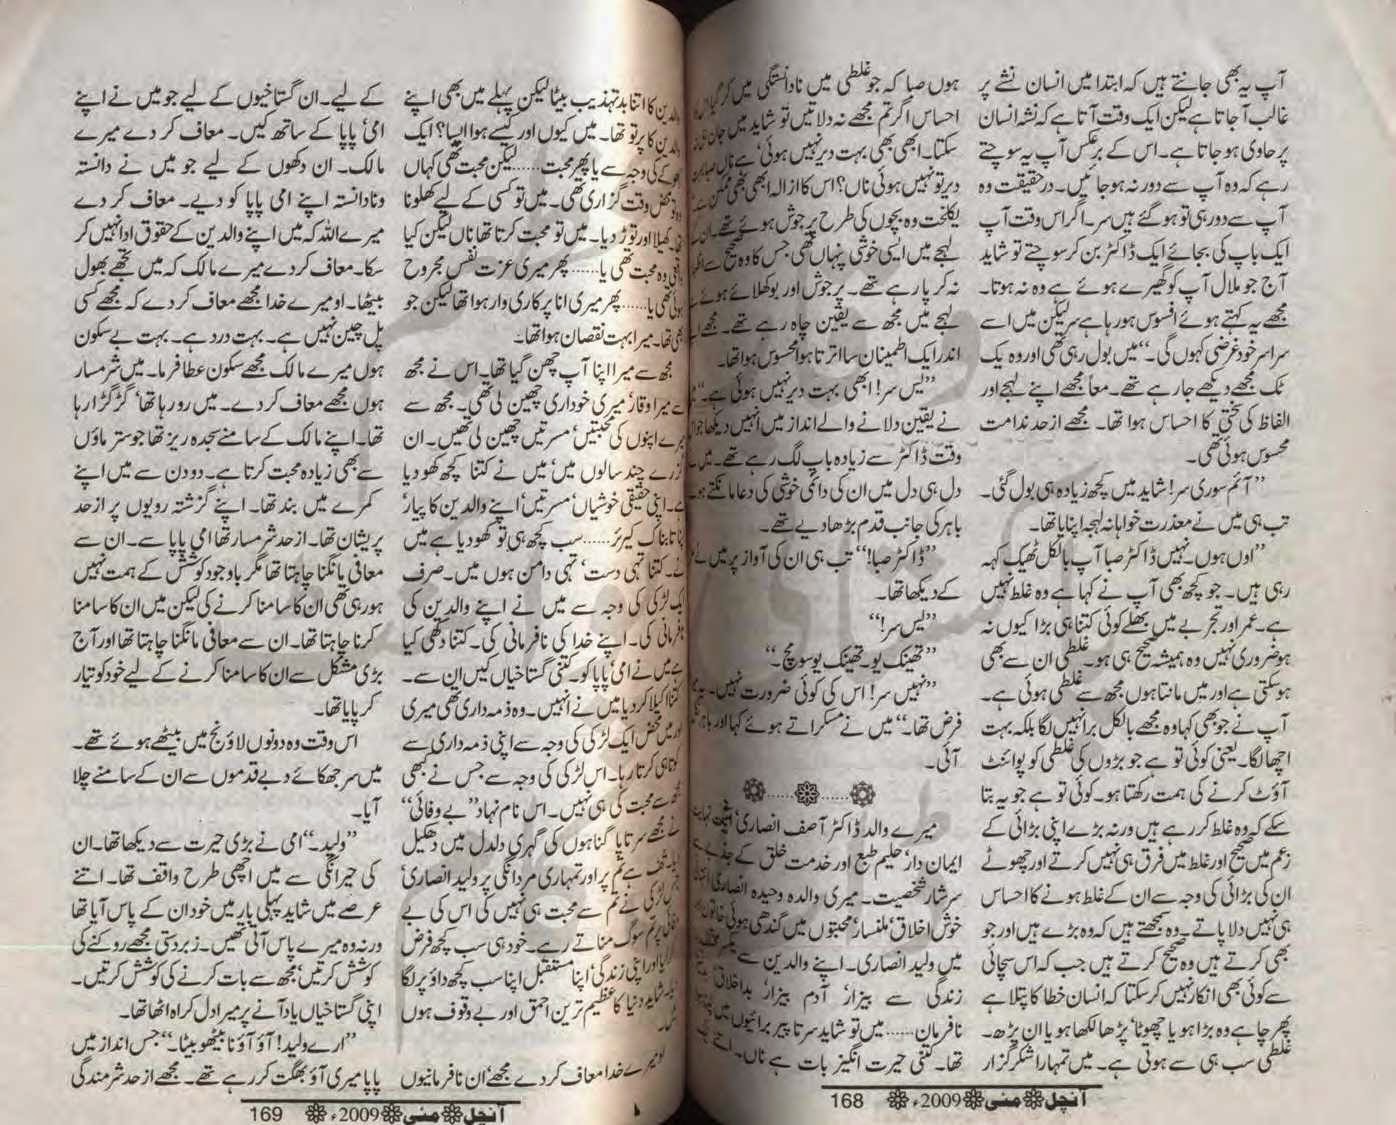 آپ یہ بھی جانتے ہیں کہ ابتدا میں انسان نشے پر
غالب آ جاتا ہے لیکن ایک وقت آتا ہے کہ نشہ انسان
پر حاوی ہو جاتا ہے۔ اس کے برعکس آپ یہ سوچتے
رہے کہ وہ آپ سے دور نہ ہو جائیں۔ درحقیقت وہ
آپ سے دور ہی تو ہو گئے ہیں سر۔ اگر اس وقت آپ
ایک باپ کی بجائے ایک ڈاکٹر بن کر سوچتے تو شاید
آج جو ملال آپ کو گھیرے ہوئے ہے وہ نہ ہوتا۔
مجھے یہ کہتے ہوئے افسوس ہو رہا ہے سر لیکن میں اسے
سراسر خود غرضی کہوں گی۔“ میں بول رہی تھی اور وہ یک
ٹک مجھے دیکھے جا رہے تھے۔ معاً مجھے اپنے لہجے اور
الفاظ کی سختی کا احساس ہوا تھا۔ مجھے از حد ندامت
محسوس ہوئی تھی۔
”آئم سوری سر! شاید میں کچھ زیادہ ہی بول گئی۔
تب ہی میں نے معذرت خواہانہ لہجہ اپنایا تھا۔
”اوں ہوں۔ نہیں ڈاکٹر صبا آپ بالکل ٹھیک کہہ
رہی ہیں۔ جو کچھ بھی آپ نے کہا ہے وہ غلط نہیں
ہے۔ عمر اور تجربے میں بھلے کوئی کتنا ہی بڑا کیوں نہ
ہو ضروری نہیں وہ ہمیشہ صحیح ہی ہو۔ غلطی ان سے بھی
ہو سکتی ہے اور میں مانتا ہوں مجھ سے غلطی ہوئی ہے۔
آپ نے جو بھی کہا وہ مجھے بالکل برا نہیں لگا بلکہ بہت
اچھا لگا۔ یعنی کوئی تو ہے جو بڑوں کی غلطی کو پوائنٹ
آؤٹ کرنے کی ہمت رکھتا ہو۔ کوئی تو ہے جو یہ بتا
سکے کہ وہ غلط کر رہے ہیں ورنہ بڑے اپنی بڑائی کے
زعم میں صحیح اور غلط میں فرق ہی نہیں کرتے اور چھوٹے
ان کی بڑائی کی وجہ سے ان کے غلط ہونے کا احساس
ہی نہیں دلا پاتے۔ وہ سمجھتے ہیں کہ وہ بڑے ہیں اور جو
بھی کرتے ہیں وہ صحیح کرتے ہیں جب کہ اس سچائی
سے کوئی بھی انکار نہیں کر سکتا کہ انسان خطا کا پتلا ہے
پھر چاہے وہ بڑا ہو یا چھوٹا‘ پڑھا لکھا ہو یا ان پڑھ۔
غلطی سب ہی سے ہوتی ہے۔ میں تمہارا شکر گزار
ہوں صبا کہ جو غلطی میں نادانستگی میں
احساس اگر تم مجھے نہ دلاتیں تو شاید میں
سکتا۔ ابھی بھی بہت دیر نہیں ہوئی‘ ہے ناں
دیر تو نہیں ہوئی ناں؟ اس کا ازالہ ابھی بھی ممکن
یکلخت وہ بچوں کی طرح پر جوش ہوئے تھے۔
لہجے میں ایسی خوشی پنہاں تھی جس کا وہ صحیح سے
نہ کر پا رہے تھے۔ پر جوش اور بوکھلائے ہوئے
لہجے میں مجھ سے یقین چاہ رہے تھے۔ مجھے
اندر ایک اطمینان سا اترتا ہوا محسوس ہوا تھا۔
”یس سر! ابھی بہت دیر نہیں ہوئی ہے۔“
نے یقین دلانے والے انداز میں انہیں دیکھا
وقت ڈاکٹر سے زیادہ باپ لگ رہے تھے۔ میں
دل ہی دل میں ان کی دائمی خوشی کی دعا مانگتے
باہر کی جانب قدم بڑھا دیے تھے۔
”ڈاکٹر صبا!“ تب ہی ان کی آواز پر میں نے
کے دیکھا تھا۔
”یس سر!“
”تھینک یو۔ تھینک یو سو مچ۔“
”نہیں سر! اس کی کوئی ضرورت نہیں۔ یہ
فرض تھا۔“ میں نے مسکراتے ہوئے کہا اور باہر
آئی۔
میرے والد ڈاکٹر آصف انصاری‘ نہایت
ایمان دار‘ حلیم طبع اور خدمت خلق کے جذبے
سرشار شخصیت۔ میری والدہ وحیدہ انصاری
خوش اخلاق‘ ملنسار‘ محبتوں میں گندھی ہوئی
میں ولید انصاری۔ اپنے والدین سے یکسر
زندگی سے بیزار‘ آدم بیزار‘ بداخلاق‘
نافرمان...... میں تو شاید سر تا پیر برائیوں میں
تھا۔ کتنی حیرت انگیز بات ہے ناں۔ اتنے
آنچل مئی 2009ء 168
والدین کا اتنا بدتہذیب بیٹا لیکن پہلے میں بھی اپنے
والدین کا پرتو تھا۔ میں کیوں اور کیسے ہوا ایسا؟ ایک
کی وجہ سے یا پھر محبت...... لیکن محبت تھی کہاں
وہ تو محض وقت گزاری تھی۔ میں تو کسی کے لیے کھلونا
تھا۔ کھیلا اور توڑ دیا۔ میں تو محبت کرتا تھا ناں لیکن کیا
واقعی وہ محبت تھی یا...... پھر میری عزت نفس مجروح
ہوئی تھی یا...... پھر میری انا پر کاری وار ہوا تھا لیکن جو
بھی تھا۔ میرا بہت نقصان ہوا تھا۔
مجھ سے میرا اپنا آپ چھن گیا تھا۔ اس نے مجھ
سے میرا وقار‘ میری خودداری چھین لی تھی۔ مجھ سے
میرے اپنوں کی محبتیں‘ مسرتیں چھین لی تھیں۔ ان
گزرے چند سالوں میں‘ میں نے کتنا کچھ کھو دیا
ہے۔ اپنی حقیقی خوشیاں‘ مسرتیں‘ اپنے والدین کا پیار‘
اپنا تابناک کیریئر...... سب کچھ ہی تو کھو دیا ہے میں
نے۔ کتنا تہی دست‘ تہی دامن ہوں میں۔ صرف
ایک لڑکی کی وجہ سے میں نے اپنے والدین کی
نافرمانی کی۔ اپنے خدا کی نافرمانی کی۔ کتنا دکھی کیا
ہے میں نے امی‘ پاپا کو۔ کتنی گستاخیاں کیں ان سے۔
کتنا اکیلا کر دیا میں نے انہیں۔ وہ ذمہ داری تھی میری
اور میں محض ایک لڑکی کی وجہ سے اپنی ذمہ داری سے
کوتاہی کرتا رہا۔ اس لڑکی کی وجہ سے جس نے کبھی
مجھ سے محبت کی ہی نہیں۔ اس نام نہاد ”بے وفائی“
نے مجھے سر تا پا گناہوں کی گہری دلدل میں دھکیل
ہے تم پر اور تمہاری مردانگی پر ولید انصاری‘
لڑکی نے تم سے محبت ہی نہیں کی اس کی بے
وفائی پر تم سوگ مناتے رہے۔ خود ہی سب کچھ فرض
کر لیا اور اپنی زندگی‘ اپنا مستقبل اپنا سب کچھ داؤ پر لگا
شاید دنیا کا عظیم ترین احمق اور بے وقوف ہوں
میرے خدا معاف کر دے مجھے‘ ان نافرمانیوں
کے لیے۔ ان گستاخیوں کے لیے جو میں نے اپنے
امی‘ پاپا کے ساتھ کیں۔ معاف کر دے میرے
مالک۔ ان دکھوں کے لیے جو میں نے دانستہ
و نادانستہ اپنے امی پاپا کو دیے۔ معاف کر دے
میرے اللہ کہ میں اپنے والدین کے حقوق ادا نہیں کر
سکا۔ معاف کر دے میرے مالک کہ میں تجھے بھول
بیٹھا۔ او میرے خدا مجھے معاف کر دے کہ مجھے کسی
پل چین نہیں ہے۔ بہت درد ہے۔ بہت بے سکون
ہوں میرے مالک مجھے سکون عطا فرما۔ میں شرمسار
ہوں مجھے معاف کر دے۔ میں رو رہا تھا‘ گڑگڑا رہا
تھا۔ اپنے مالک کے سامنے سجدہ ریز تھا جو ستر ماؤں
سے بھی زیادہ محبت کرتا ہے۔ دو دن سے میں اپنے
کمرے میں بند تھا۔ اپنے گزشتہ رویوں پر از حد
پریشان تھا۔ از حد شرمسار تھا امی پاپا سے۔ ان سے
معافی مانگنا چاہتا تھا مگر باوجود کوشش کے ہمت نہیں
ہو رہی تھی ان کا سامنا کرنے کی لیکن میں ان کا سامنا
کرنا چاہتا تھا۔ ان سے معافی مانگنا چاہتا تھا اور آج
بڑی مشکل سے ان کا سامنا کرنے کے لیے خود کو تیار
کر پایا تھا۔
اس وقت وہ دونوں لاؤنج میں بیٹھے ہوئے تھے۔
میں سر جھکائے دبے قدموں سے ان کے سامنے چلا
آیا۔
”ولید۔“ امی نے بڑی حیرت سے دیکھا تھا۔ ان
کی حیرانگی سے میں اچھی طرح واقف تھا۔ اتنے
عرصے میں شاید پہلی بار میں خود ان کے پاس آیا تھا
ورنہ وہ میرے پاس آتی تھیں۔ زبردستی مجھے روکنے کی
کوشش کرتیں‘ مجھ سے بات کرنے کی کوشش کرتیں۔
اپنی گستاخیاں یاد آنے پر میرا دل کراہ اٹھا تھا۔
”ارے ولید! آؤ آؤ نا بیٹھو بیٹا۔“ جس انداز میں
پاپا میری آؤ بھگت کر رہے تھے۔ مجھے از حد شرمندگی
آنچل مئی 2009ء 169